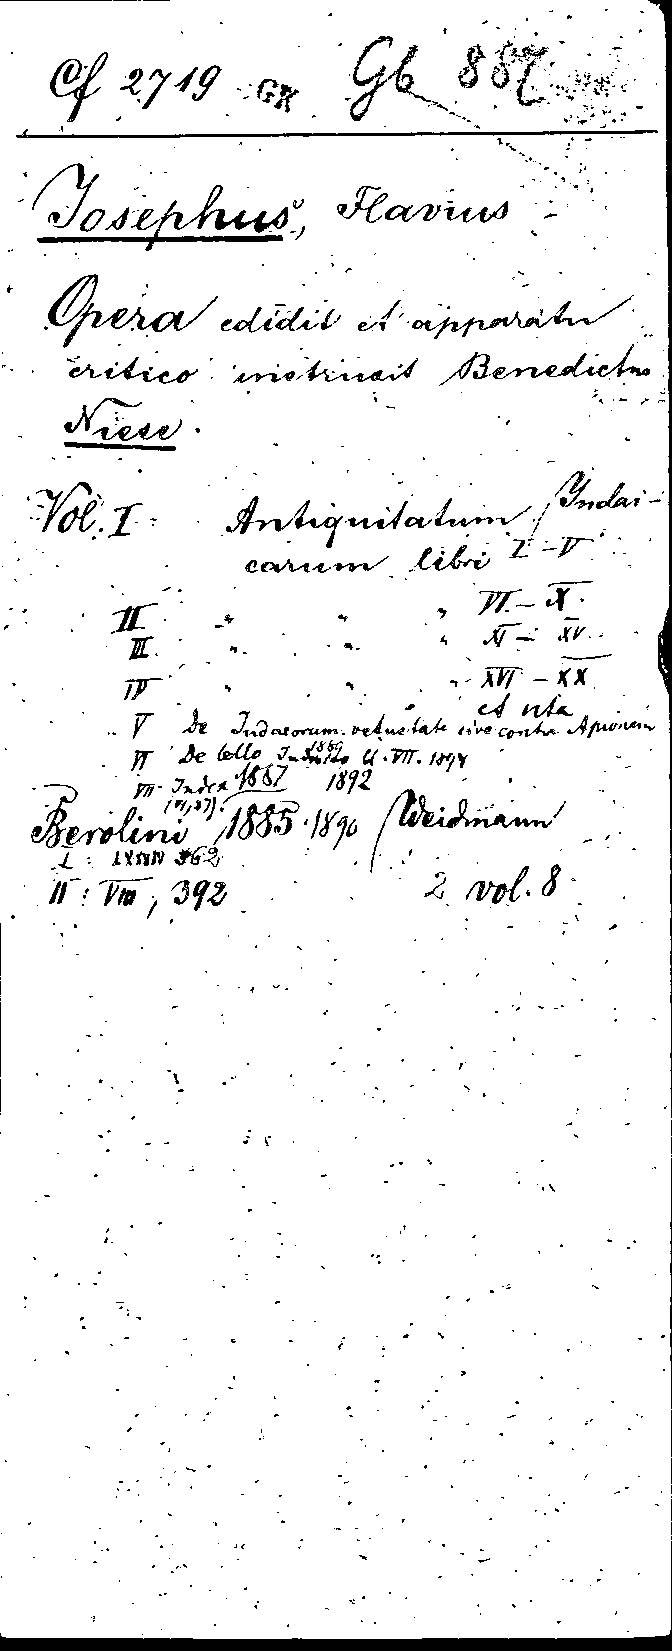 Cf 2719 GK Gb 887
Josephus, Flavius
Opera edidit et apparatu
critico instruxit Benedictus
Niese.
Vol. I Antiquitatum Judai-
carum libri I-V
II " " " VI-X.
III. " " " XI-XV.
IV " " " XVI-XX
et vita
V De Judaeorum vetustate sive contra Apionem
1889
VI De bello Judaico VII. 1894
VII Index 1887 1892
Berolini 1885-1890 Weidmann
I: 362
II: VIII, 392 2 vol. 8